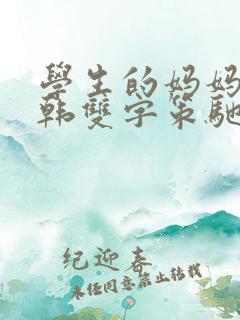 學生的妈妈
韩雙字策馳
纪迎春
未经同意禁止转载